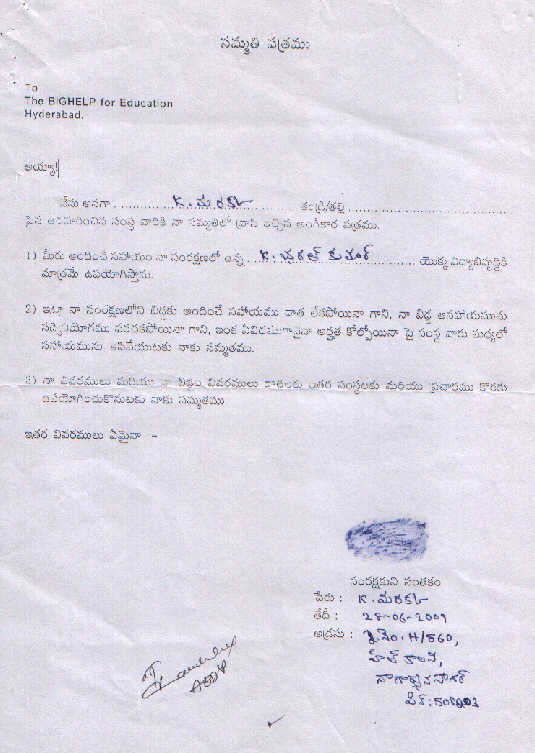 సమ్మతి పత్రము
To
The BIGHELP for Education
Hyderabad.
అయ్యా!
నేను అనగా ..................... తండ్రి/తల్లి .....................
పైన ఉదహరించిన సంస్థ వారికి నా సమ్మతితో వ్రాసి ఇచ్చిన అంగీకార పత్రము.
1) మీరు అందించే సహాయం నా సంరక్షణలో ఉన్న .. K. భరత్ కుమార్ ............ యొక్క విద్యాభివృద్ధికి
మాత్రమే ఉపయోగిస్తాను.
2) ఇట్లా నా సంరక్షణలోని బిడ్డకు అందించే సహాయము వాడ లేకపోయినా గాని, నా బిడ్డ ఆసహాయమును
సద్వినియోగము పరచకపోయినా గాని, ఇంక ఏవిధముగానైనా అర్హత కోల్పోయినా పై సంస్థ వారు మధ్యలో
సహాయమును ఆపివేయుటకు నాకు సమ్మతము.
3) నా వివరములు మరియు నా బిడ్డ వివరములు కొరకు ఇతర సంస్థలకు మరియు ప్రచారము కొరకు
ఉపయోగించుకొనుటకు నాకు సమ్మతము
ఇతర వివరములు ఏమైనా -
సంరక్షకుని సంతకం
పేరు : K.
తేదీ : 28-06-2009
అడ్రసు : H/560,
హిల్ కాలనీ,
నాగార్జున సాగర్
పిన్: